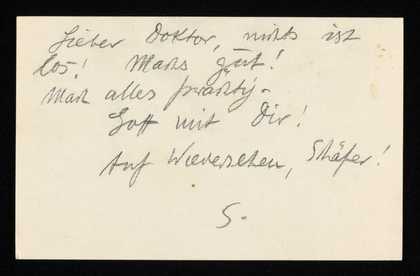 Lieber Doktor, nichts ist
los! Machs gut!
Mach alles prächtig.
Gott mit Dir!
Auf Wiedersehen, Schäfer!
S.